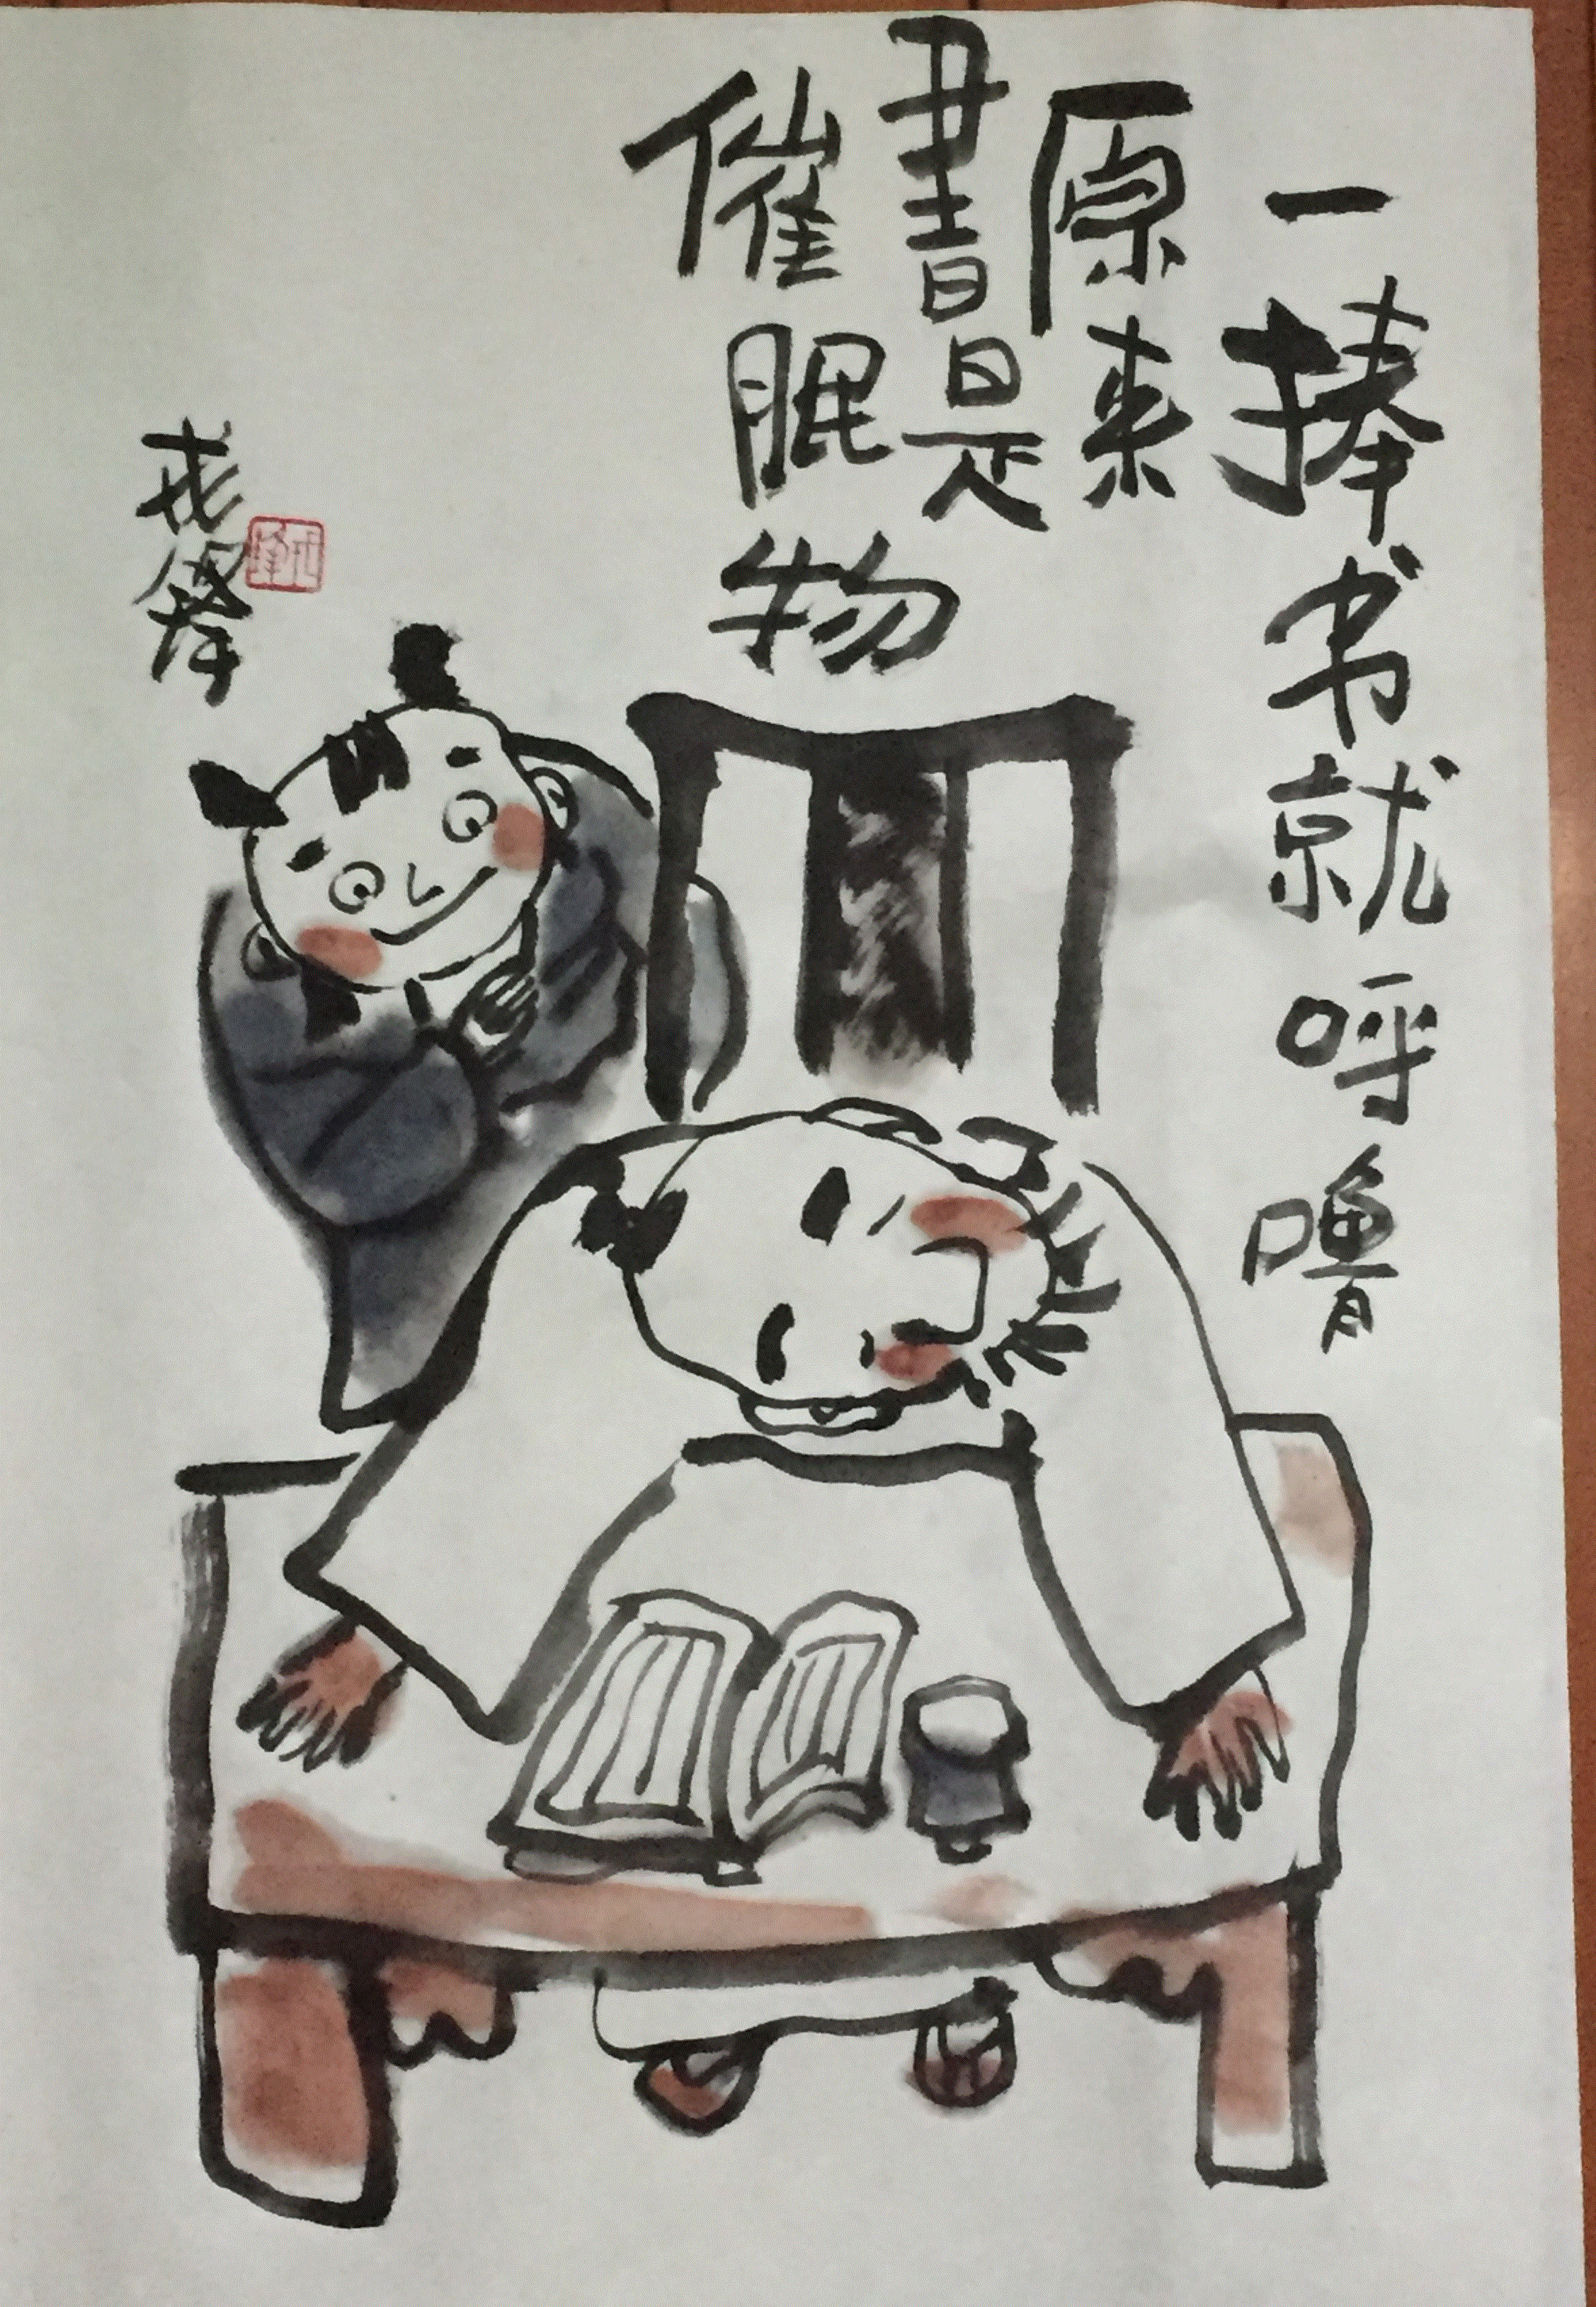 一捧书就呼噜
原来
書是
催眠物